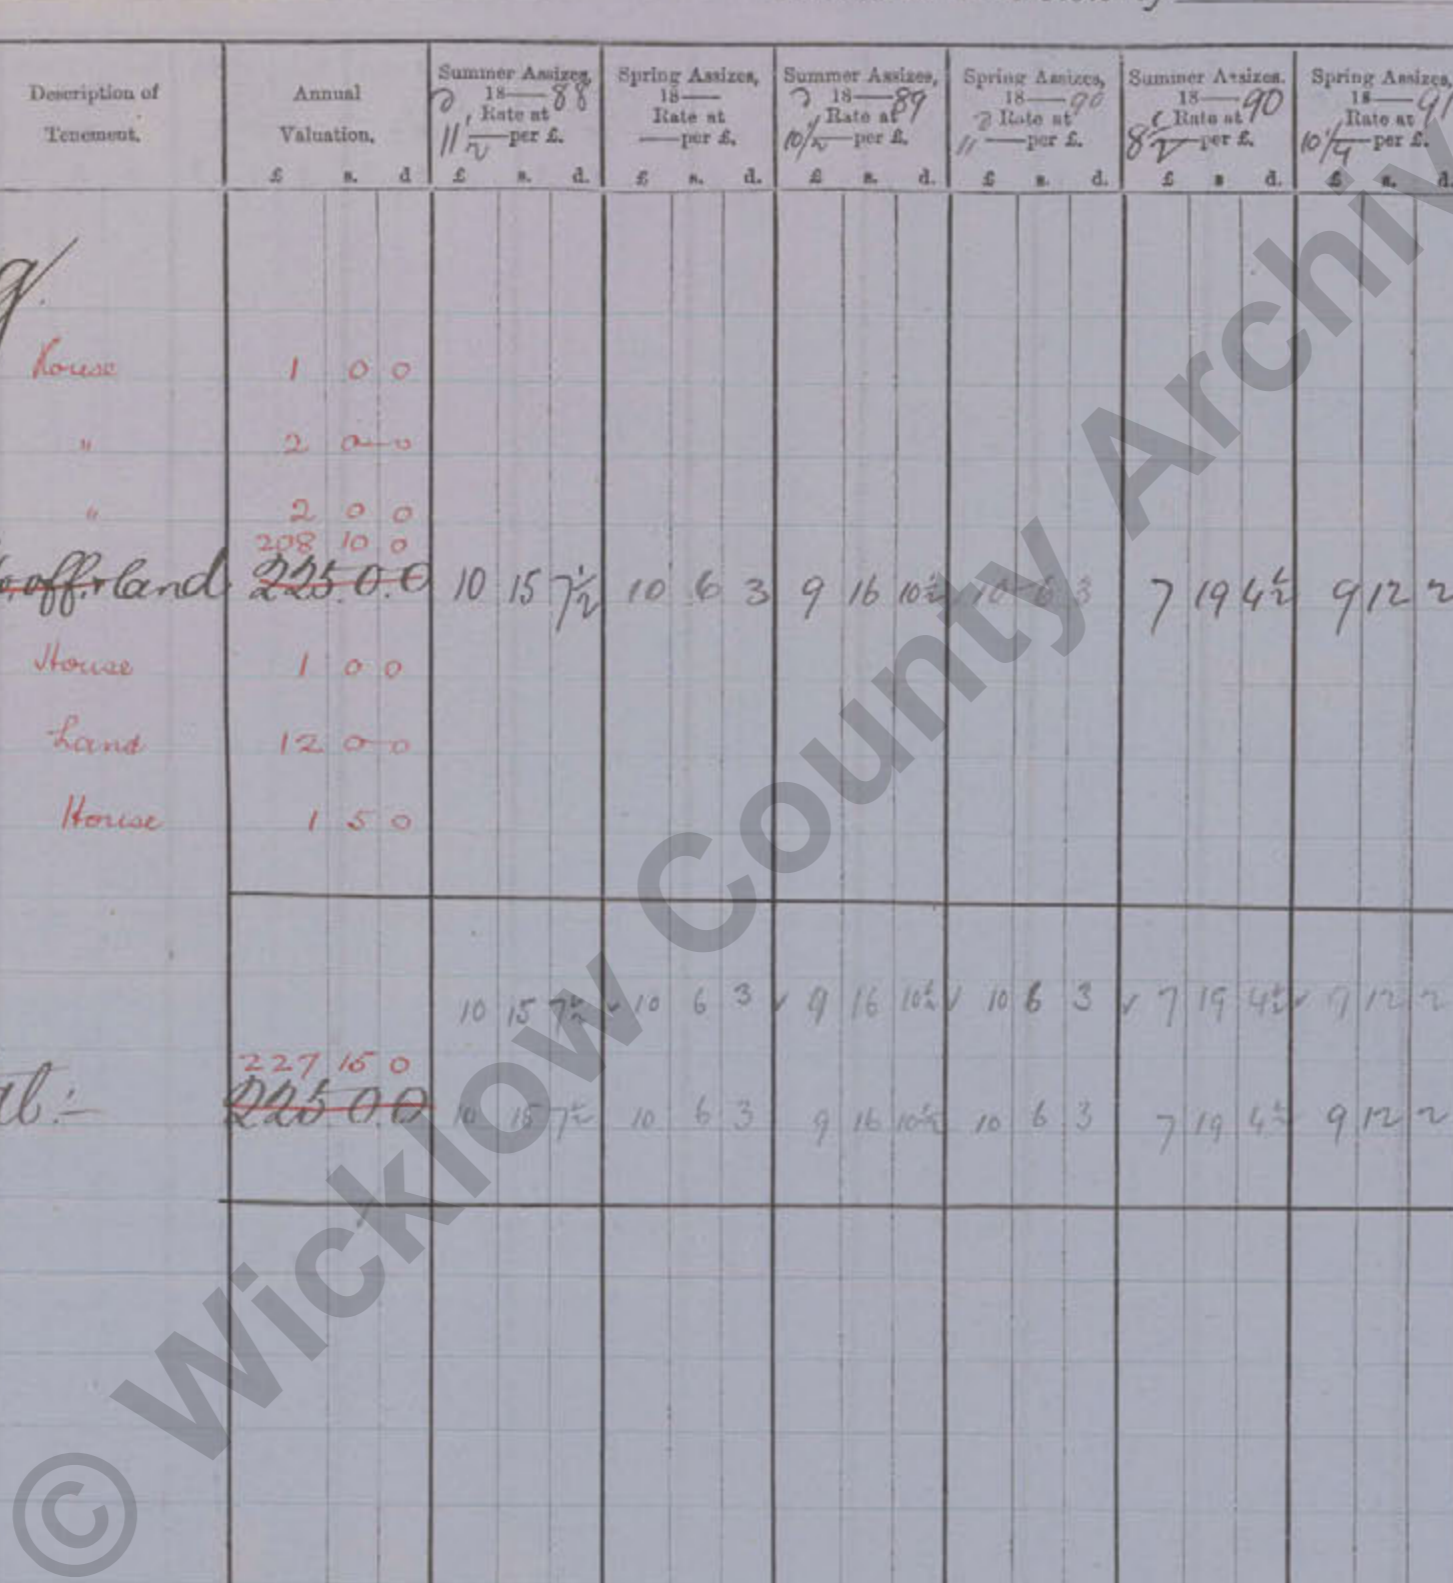 Description of Tenement. Annual Valuation. £ s. d Summer Assizes, 1888 Rate at 11½ per £. £ s. d. Spring Assizes, 18— Rate at — per £. £ s. d. Summer Assizes, 1889 Rate at 10½ per £. £ s. d. Spring Assizes, 1890 Rate at 11 per £. £ s. d. Summer Assizes. 1890 Rate at 8½ per £. £ s d. Spring Assizes, 1891 Rate at 10¼ per £. £ s. d.
g
house 1 0 0
" 2 0 0
" 2 0 0
208 10 0
off. & land 225.0.0 10 15 7½ 10 6 3 9 16 10½ 10 6 3 7 19 4½ 9 12 2
House 1 0 0
Land 12 0 0
House 1 5 0
10 15 7½ ✓ 10 6 3 ✓ 9 16 10½ ✓ 10 6 3 ✓ 7 19 4½ ✓ 9 12 2
227 15 0
al:- 225 0 0 10 15 7½ 10 6 3 9 16 10½ 10 6 3 7 19 4½ 9 12 2
© Wicklow County Archiv